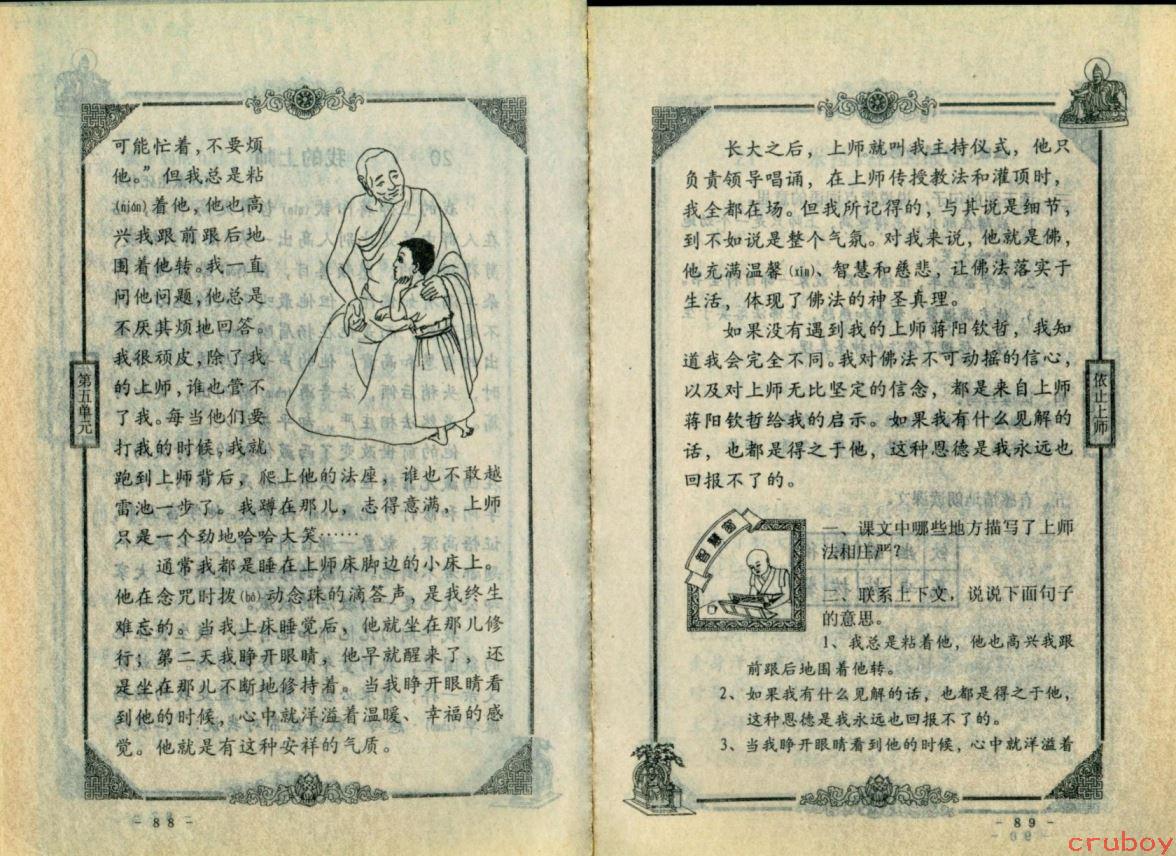 可能忙着，不要烦
他。”但我总是粘
(nián)着他，他也高
兴我跟前跟后地
围着他转。我一直
问他问题，他总是
不厌其烦地回答。
我很顽皮，除了我
的上师，谁也管不
了我。每当他们要
打我的时候，我就
跑到上师背后，爬上他的法座，谁也不敢越
雷池一步了。我蹲在那儿，志得意满，上师
只是一个劲地哈哈大笑……
通常我都是睡在上师床脚边的小床上。
他在念咒时拨(bō)动念珠的滴答声，是我终生
难忘的。当我上床睡觉后，他就坐在那儿修
行；第二天我睁开眼睛，他早就醒来了，还
是坐在那儿不断地修持着。当我睁开眼睛看
到他的时候，心中就洋溢着温暖、幸福的感
觉。他就是有这种安祥的气质。
第五单元
- 88 -
长大之后，上师就叫我主持仪式，他只
负责领导唱诵，在上师传授教法和灌顶时，
我全都在场。但我所记得的，与其说是细节，
到不如说是整个气氛。对我来说，他就是佛，
他充满温馨(xīn)、智慧和慈悲，让佛法落实于
生活，体现了佛法的神圣真理。
如果没有遇到我的上师蒋阳钦哲，我知
道我会完全不同。我对佛法不可动摇的信心，
以及对上师无比坚定的信念，都是来自上师
蒋阳钦哲给我的启示。如果我有什么见解的
话，也都是得之于他，这种恩德是我永远也
回报不了的。
智慧窗
一、课文中哪些地方描写了上师
法相庄严？
二、联系上下文，说说下面句子
的意思。
1、我总是粘着他，他也高兴我跟
前跟后地围着他转。
2、如果我有什么见解的话，也都是得之于他，
这种恩德是我永远也回报不了的。
3、当我睁开眼睛看到他的时候，心中就洋溢着
依止上师
- 89 -
cruboy